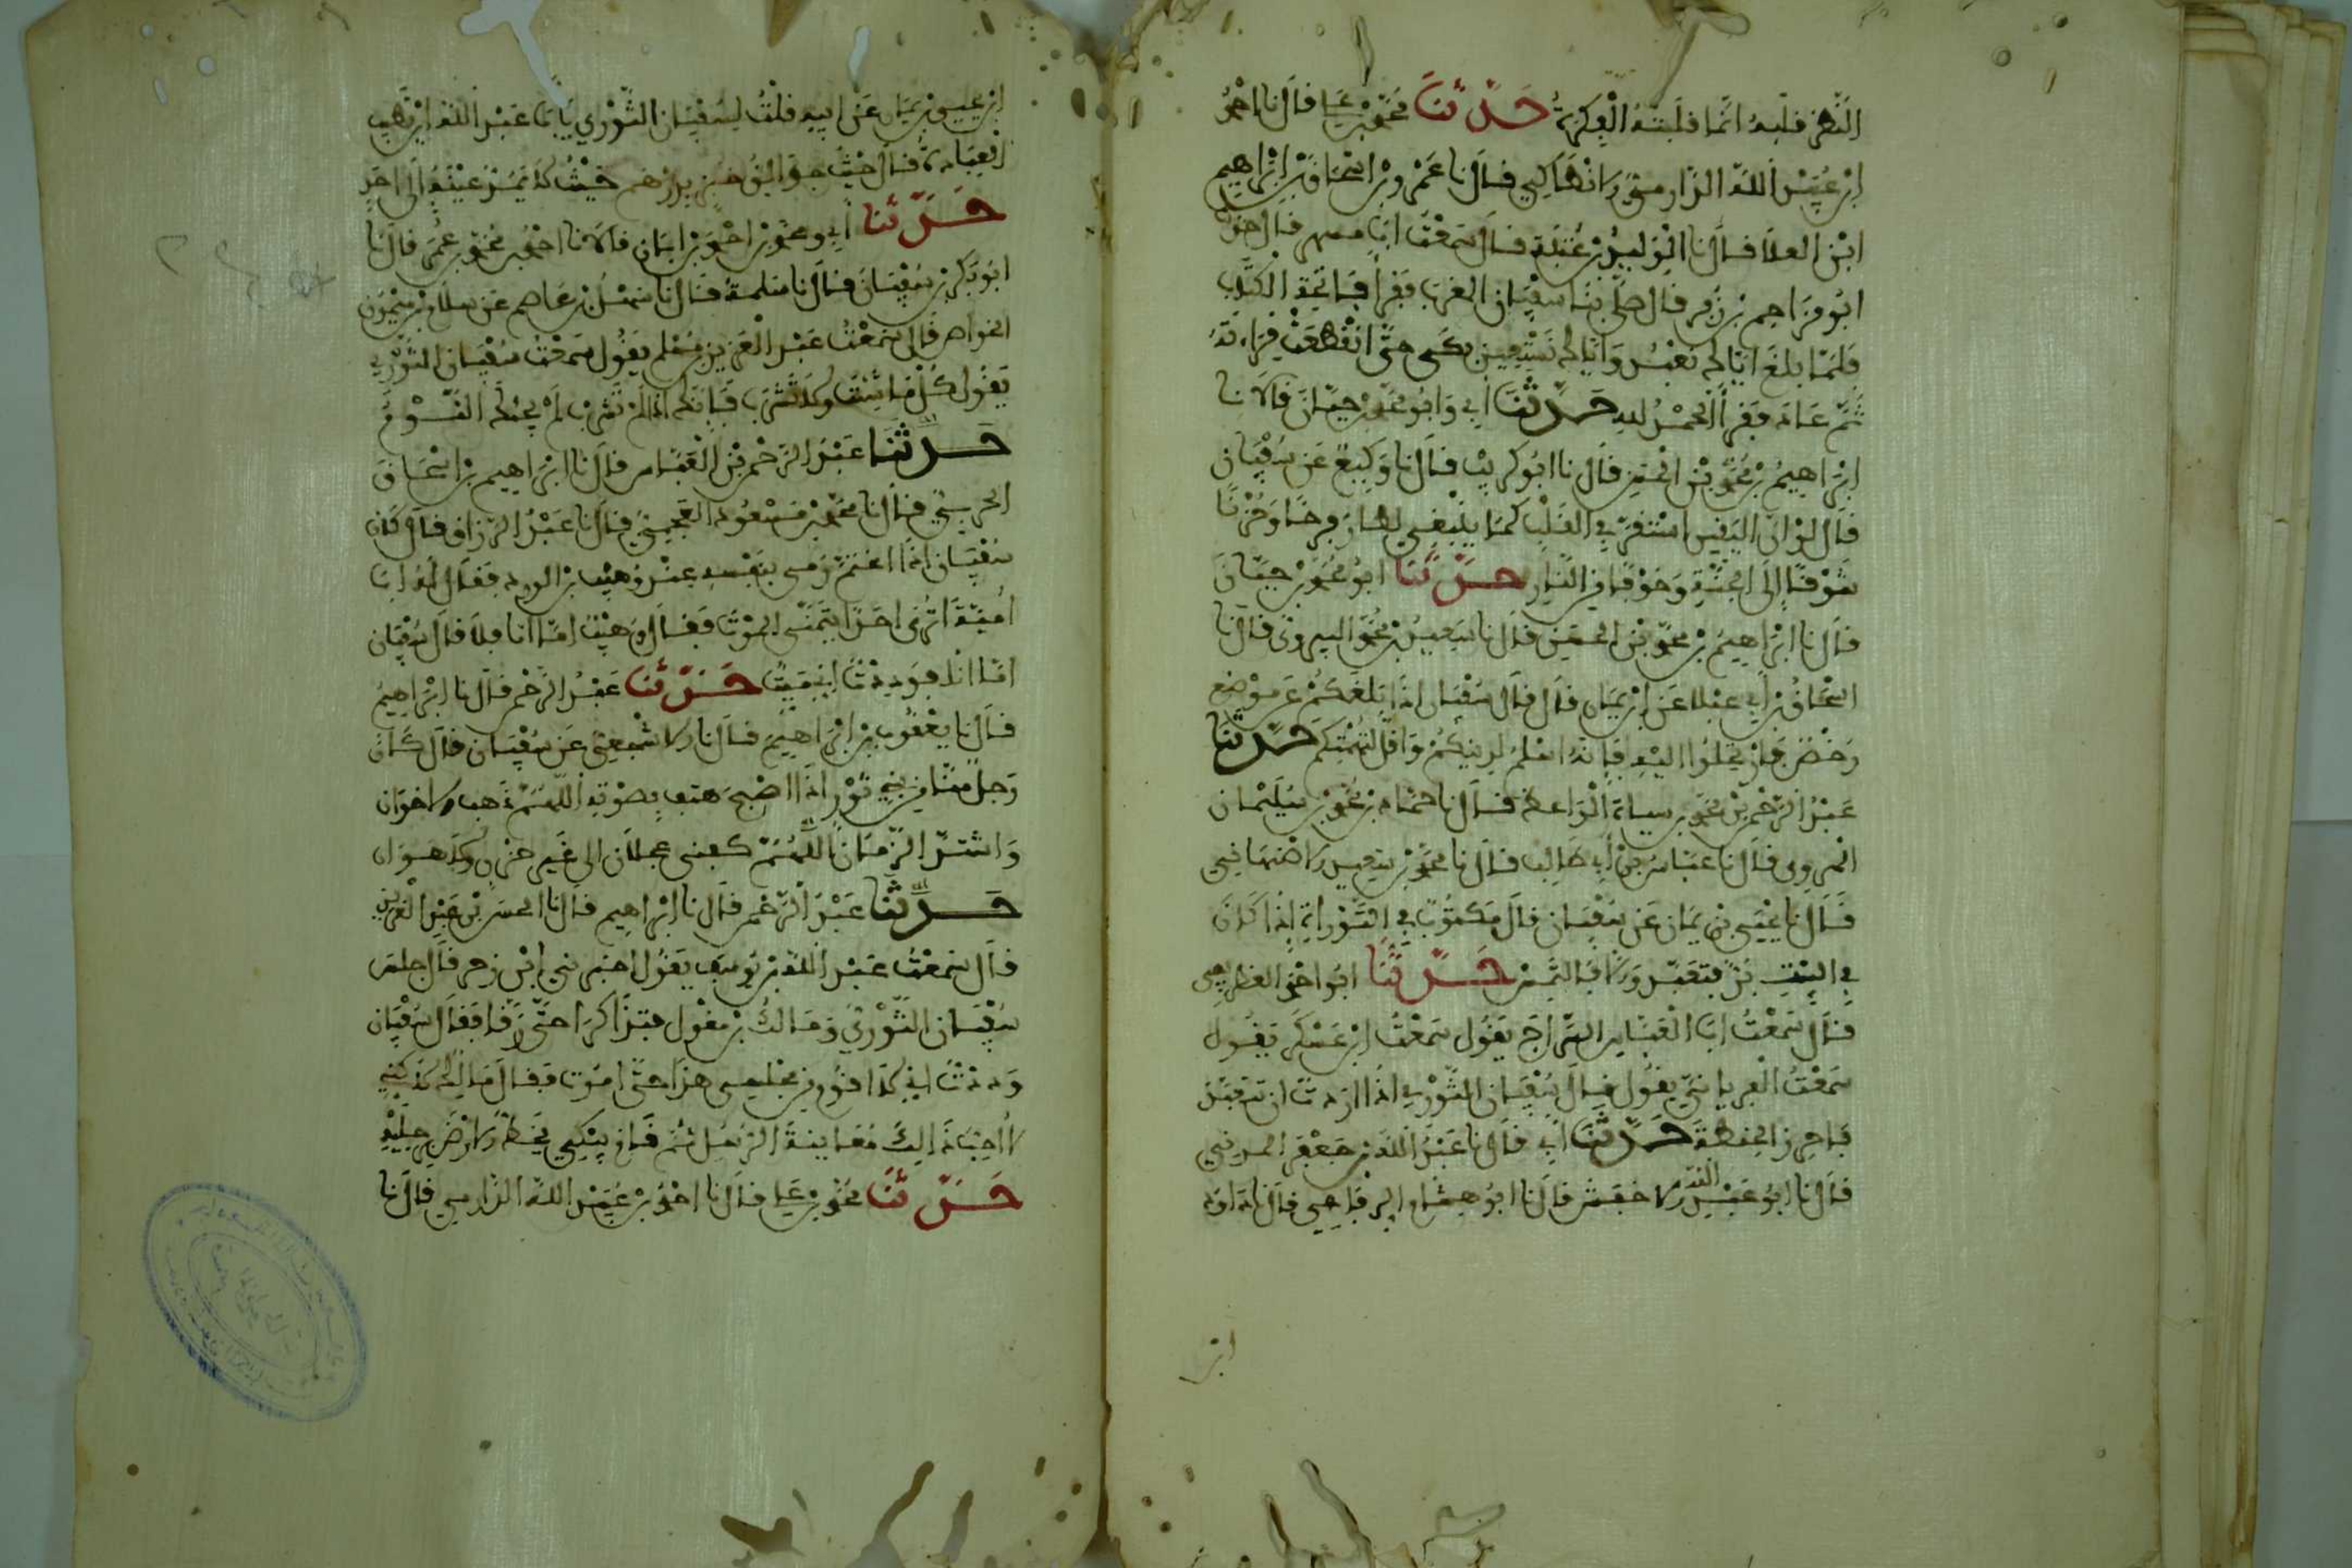 النظر قلبه انما قلبته الفكرة حدثنا محمد بن علي قال نا احمد
ابن عبيد الله الدارمي الانطاكي قال نا عمرو بن اسحاق بن ابراهيم
ابن العلا قال نا الوليد بن عتبة قال سمعت ابا مسهر قال حدثنا
ابو مزاحم بن زفر قال صلى بنا سفيان المغرب فقرأ فاتحة الكتاب
فلما بلغ اياك نعبد واياك نستعين بكى حتى انقطعت قراءته
ثم عاد فقرأ الحمد لله حدثنا ابي وابو محمد بن حيان قالا نا
ابراهيم بن محمد بن الحسن قال نا ابو كريب قال نا وكيع عن سفيان
قال لو ان اليقين استقر في القلب كما ينبغي لطار فرحا وحزنا
شوقا الى الجنة وخوفا من النار حدثنا ابو محمد بن حيان
قال نا ابراهيم بن محمد بن الحسن قال نا سعيد بن محمد البيروتي قال نا
اسحاق بن ابي عباد عن ابن يمان قال قال سفيان اذا بلغكم عن موضع
رخص فارتحلوا اليه فانه اسلم لدينكم واقل لتهمتكم حدثنا
عبد الرحمن بن محمد بن سياه الواعظ قال نا حماد بن محمد بن سليمان
المروي قال نا عباس بن ابي طالب قال نا محمد بن سعيد الاصبهاني
قال نا يحيى بن يمان عن سفيان قال مكتوب في التوراة اذا كان
في البيت بر فتعبد والا فالتمس حدثنا ابو احمد الغطريفي
قال سمعت ابا العباس السراج يقول سمعت ابن عسكر يقول
سمعت الفريابي يقول قال سفيان الثوري اذا اردت ان تتعبد
فاحرز الحنطة حدثنا ابي قال نا عبد الله بن جعفر المديني
قال نا ابو عبد الله الاخفش قال نا ابو هشام الرفاعي قال نا داود
ابن
ابن يحيى بن يمان عن ابيه قلت لسفيان الثوري يا ابا عبد الله اين تذهب
العبادة قال حيث جوالق خبز بدرهم حيث لا يمد عينه الى احد
حدثنا ابي ومحمد بن احمد بن ابان قالا نا احمد بن محمد بن عمر قال نا
ابو بكر بن سفيان قال نا سلمة قال نا سهل بن عاصم عن سلام بن ميمون
الخواص قال سمعت عبد العزيز بن مسلم يقول سمعت سفيان الثوري
يقول كل ما شئت ولا تشرب فانك اذا لم تشرب لم يجئك النوم
حدثنا عبد الرحمن بن العباس قال نا ابراهيم بن اسحاق
الحربي قال نا محمد بن مسعود العجمي قال نا عبد الرزاق قال كان
سفيان اذا اغتم رمى بنفسه عند وهيب بن الورد فقال له ابا
امية اترى احدا يتمنى الموت فقال وهيب اما انا فلا قال سفيان
اما انا فوددت اني ميت حدثنا عبد الرحمن قال نا ابراهيم
قال نا يعقوب بن ابراهيم قال نا الاشجعي عن سفيان قال كان
رجل منا من بني ثور اذا اصبح هتف بصوته اللهم ذهب الاخوان
واشتد الزمان اللهم كفني عجلان الى غير خزي ولا هوان
حدثنا عبد الرحمن قال نا ابراهيم قال نا الحسن بن عبد العزيز
قال سمعت عبد الله بن يوسف يقول اخبرني ابن زحر قال جلس
سفيان الثوري ومالك بن مغول فتذاكرا حتى رقا فقال سفيان
وددت اني لا اقوم من مجلسي هذا حتى اموت فقال مالك لكني
لا احب ذاك معاينة الرسل ثم قام يبكي يخط الارض برجليه
حدثنا محمد بن علي قال نا احمد بن عبيد الله الدارمي قال نا